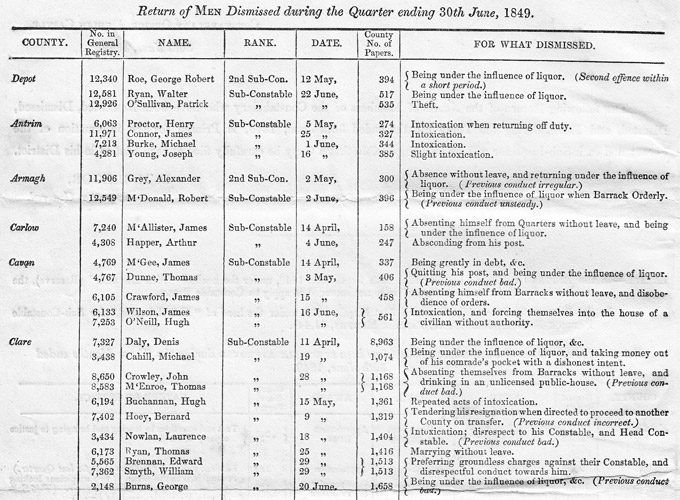 Return of MEN Dismissed during the Quarter ending 30th June, 1849.
COUNTY. No. in General Registry. NAME. RANK. DATE. County No. of Papers. FOR WHAT DISMISSED.
Depot 12,340 Roe, George Robert 2nd Sub-Con. 12 May, 394 Being under the influence of liquor. (Second offence within
a short period.)
12,581 Ryan, Walter Sub-Constable 22 June, 517 Being under the influence of liquor.
12,926 O'Sullivan, Patrick „ „ 535 Theft.
Antrim 6,063 Proctor, Henry Sub-Constable 5 May, 274 Intoxication when returning off duty.
11,971 Connor, James „ 25 „ 327 Intoxication.
7,213 Burke, Michael „ 1 June, 344 Intoxication.
4,281 Young, Joseph „ 16 „ 385 Slight intoxication.
Armagh 11,906 Grey, Alexander 2nd Sub-Con. 2 May, 300 Absence without leave, and returning under the influence of
liquor. (Previous conduct irregular.)
12,549 M'Donald, Robert Sub-Constable 2 June, 396 Being under the influence of liquor when Barrack Orderly.
(Previous conduct unsteady.)
Carlow 7,240 M'Allister, James Sub-Constable 14 April, 158 Absenting himself from Quarters without leave, and being
under the influence of liquor.
4,308 Happer, Arthur „ 4 June, 247 Absconding from his post.
Cavan 4,769 M'Gee, James Sub-Constable 14 April, 337 Being greatly in debt, &c.
4,767 Dunne, Thomas „ 3 May, 406 Quitting his post, and being under the influence of liquor.
(Previous conduct bad.)
6,105 Crawford, James „ 15 „ 458 Absenting himself from Barracks without leave, and disobe-
dience of orders.
6,133 Wilson, James „ 16 June, 561 Intoxication, and forcing themselves into the house of a
7,253 O'Neill, Hugh „ „ civilian without authority.
Clare 7,327 Daly, Denis Sub-Constable 11 April, 8,963 Being under the influence of liquor, &c.
3,438 Cahill, Michael „ 19 „ 1,074 Being under the influence of liquor, and taking money out
of his comrade's pocket with a dishonest intent.
8,650 Crowley, John „ 28 „ 1,168 Absenting themselves from Barracks without leave, and
8,583 M'Enroe, Thomas „ „ 1,168 drinking in an unlicensed public-house. (Previous con-
duct bad.)
6,194 Buchannan, Hugh „ 15 May, 1,361 Repeated acts of intoxication.
7,402 Hoey, Bernard „ 9 „ 1,319 Tendering his resignation when directed to proceed to another
County on transfer. (Previous conduct incorrect.)
3,434 Nowlan, Laurence „ 18 „ 1,404 Intoxication; disrespect to his Constable, and Head Con-
stable. (Previous conduct bad.)
6,173 Ryan, Thomas „ 25 „ 1,416 Marrying without leave.
5,565 Brennan, Edward „ 29 „ 1,513 Preferring groundless charges against their Constable, and
7,362 Smyth, William „ 29 „ 1,513 disrespectful conduct towards him.
2,148 Burns, George „ 20 June, 1,658 Being under the influence of liquor, &c. (Previous conduct
bad.)